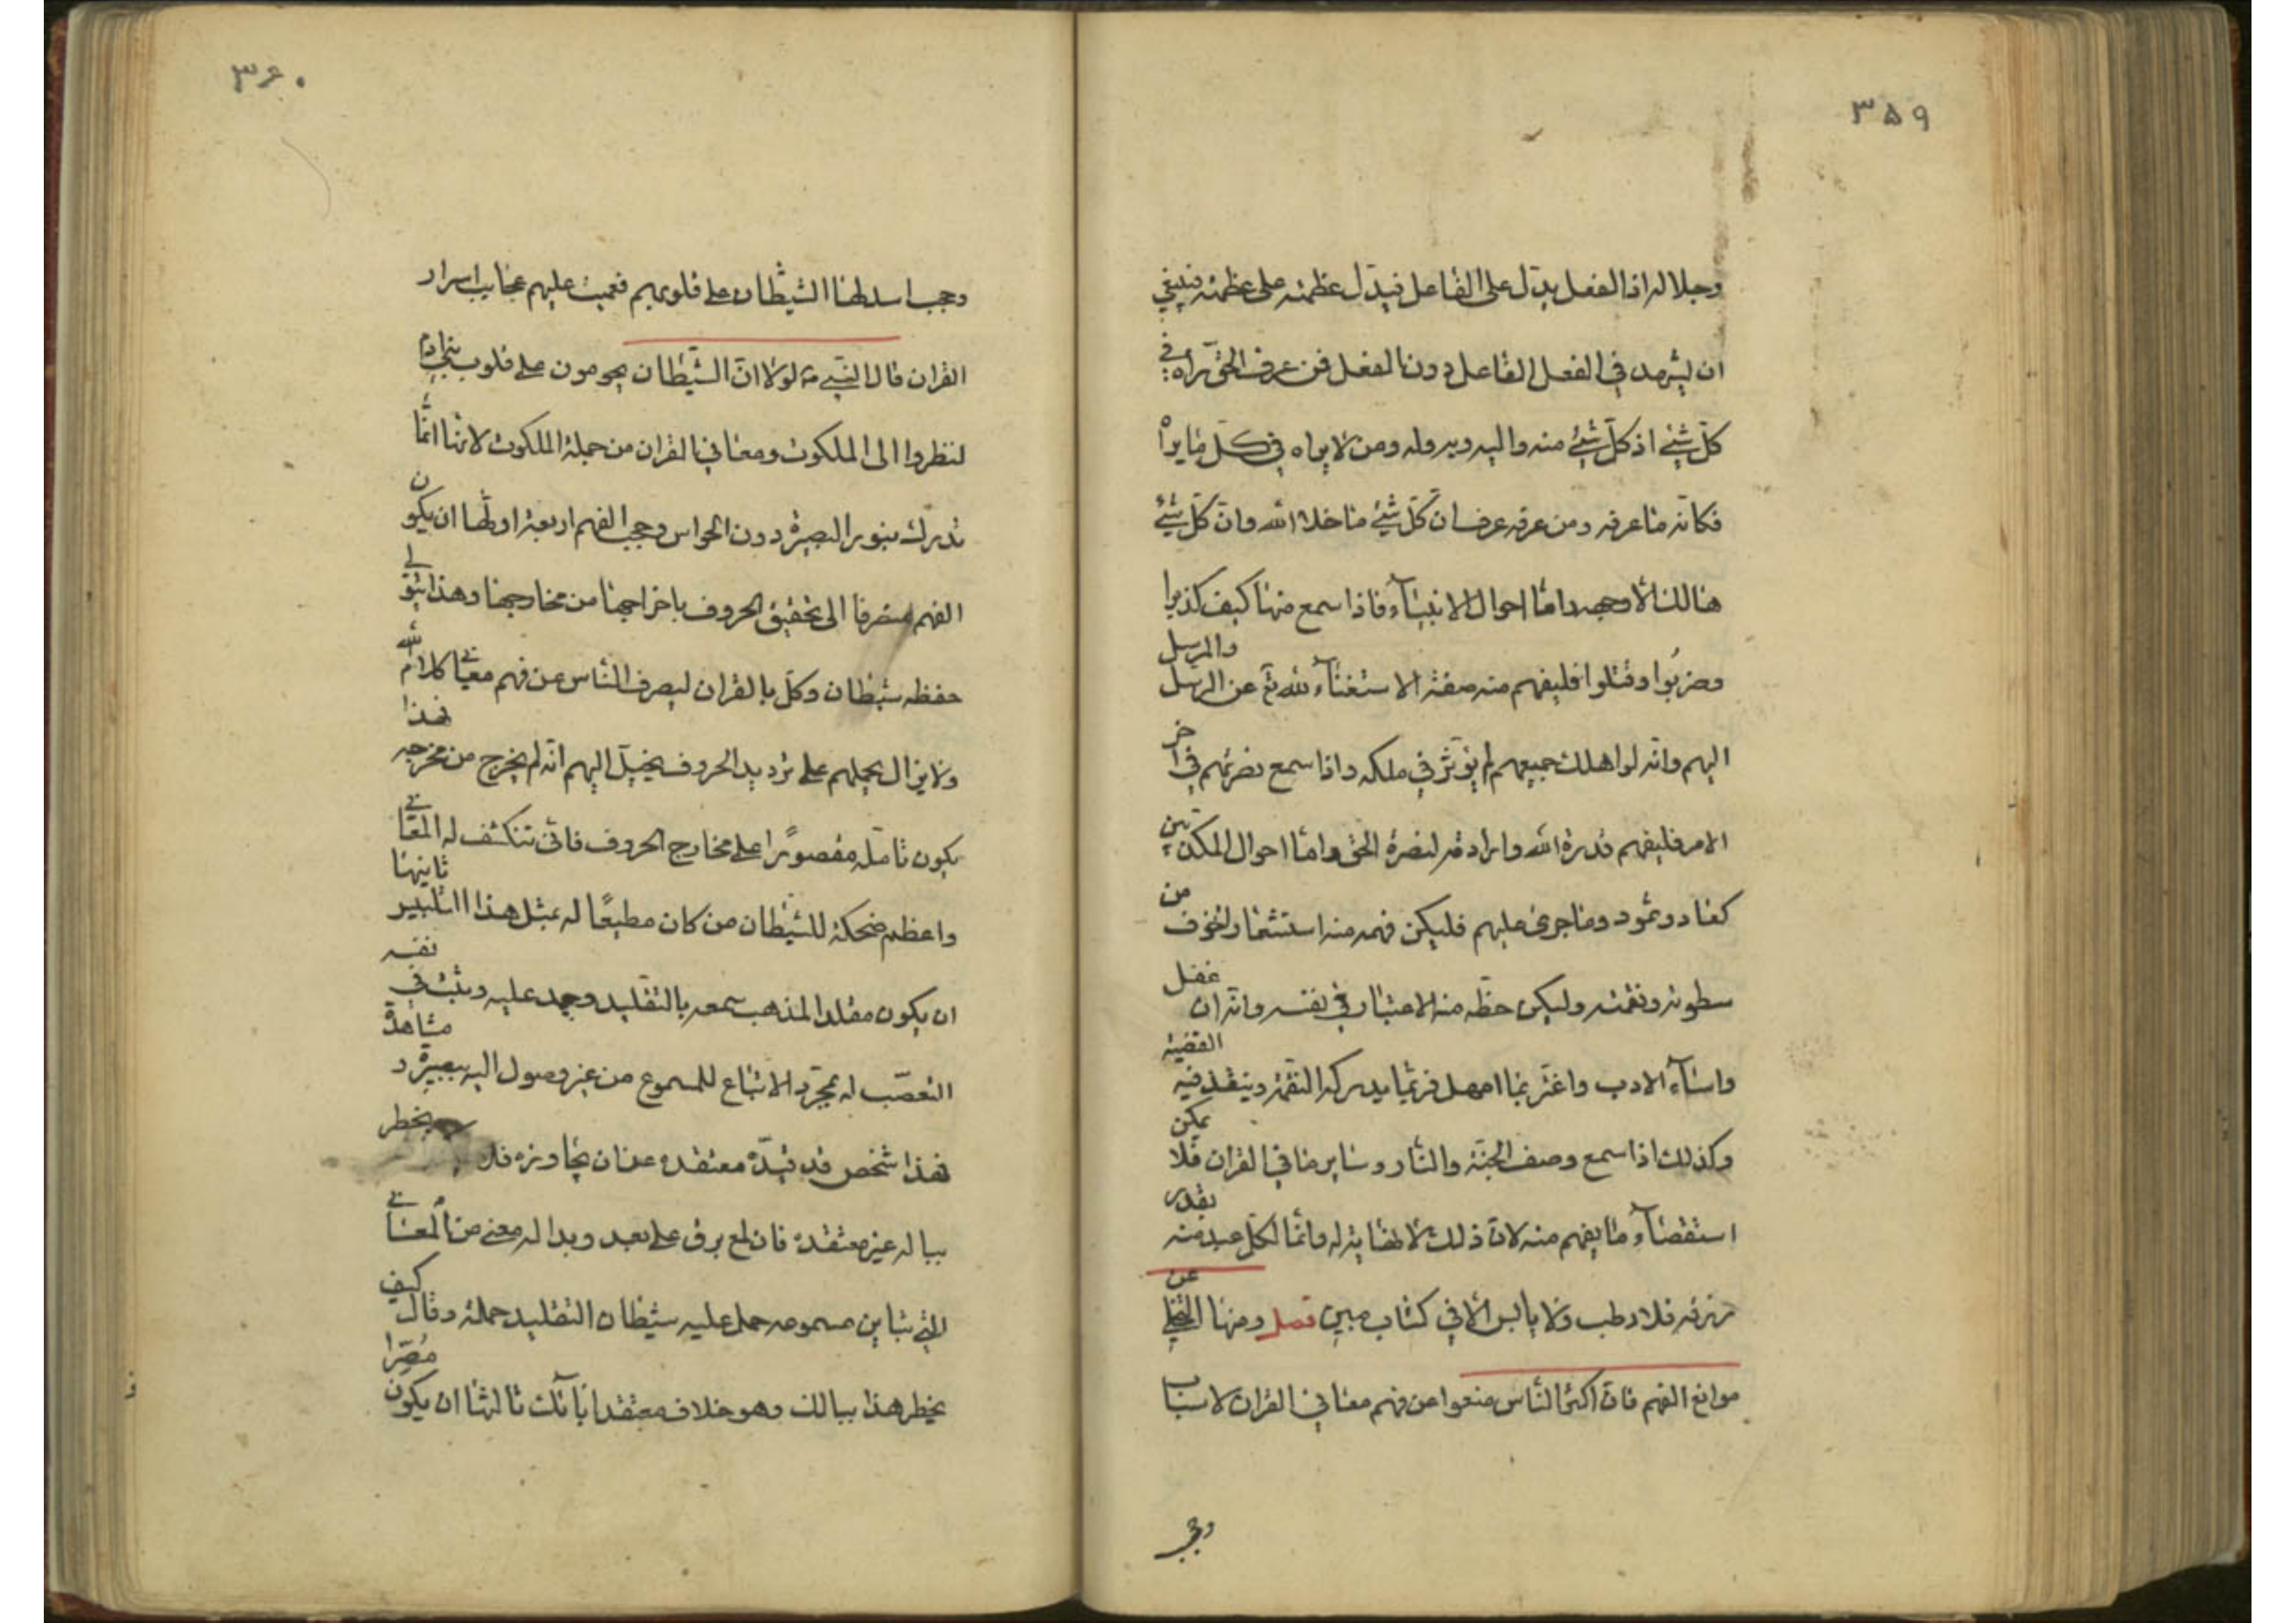 ۳۵۹
وجلاله اذ الفعل يدلّ على الفاعل فيدلّ عظمته على عظمته فينبغي
ان يشهد في الفعل الفاعل دون الفعل فمن عرف الحق رآه في
كلّ شئ اذ كلّ شئ منه واليه وبه وله ومن لا يراه في كلّ ما يراه
فكانّه ما عرفه ومن عرفه عرف ان كلّ شئ ما خلا الله وان كلّ شئ
هالك الّا وجهه وامّا احوال الانبيآء فاذا سمع منها كيف كذبوا
وضربُوا وقتلوا فليفهم منه صفة الاستغنآء لله تع عن الرسل والمرسل
اليهم وانّه لو اهلك جميعهم لم يؤثّر في ملكه واذا سمع نصرتهم في آخر
الامر فليفهم قدرة الله وارادته لنصرة الحق واما احوال المكذبين
كعاد وثمود وما جرى عليهم فليكن فهمه منه استشعار الخوف من
سطوته ونقمته وليكن حظّه منه الاعتبار في نفسه وانّه ان غفل
واسآء الادب واغترّ بما امهل فربّما يدركه النقمة وينفذ فيه القضية
وكذلك اذا سمع وصف الجنّة والنّار وساير ما في القران فلا يمكن
استقصآء ما يفهم منه لانّ ذلك لا نهاية له وانّما لكلّ عبد منه بقدر
رزقه فلا رطب ولا يابس الّا في كتاب مبين فصل ومنها التخلي عن
موانع الفهم فانّ اكثر النّاس منعوا عن فهم معاني القران لاسباب
وحجب
۳۶۰
وحجب اسدلها الشّيطان على قلوبهم فعميت عليهم عجايب اسرار
القران قال النّبيّ ص لولا انّ الشّيطان يحومون على قلوب بني ادم
لنظروا الى الملكوت ومعاني القران من جملة الملكوت لانها انّما
تدرك بنور البصيرة دون الحواس وحجب الفهم اربعة اولّها ان يكون
الفهم منصرفا الى تحقيق الحروف باخراجها من مخارجها وهذا يتولى
حفظه شيطان وكلّ بالقران ليصرف النّاس عن فهم معاني كلام الله
ولا يزال يحملهم على ترديد الحروف يخيّل اليهم انّه لم يخرج من مخرجه فهذا
يكون تامّله مقصورًا على مخارج الحروف فانّى تنكشف له المعاني
واعظم ضحكة للشّيطان من كان مطيعًا له بمثل هذا التلبيس ثانيها
ان يكون مقلدا لمذهب سمعه بالتقليد وجمد عليه وثبت في نفسه
التعصّب له بمجرّد الاتباع للمسموع من غير وصول اليه ببصيرة ومشاهدة
فهذا شخص قد قيّده معتقده عن ان يجاوزه فلا يخطر
بباله غير معتقده فان لمع برق على بعد وبدا له معنى من المعاني
الّتي تباين مسموعه حمل عليه شيطان التقليد حملة وقال كيف
يخطر هذا ببالك وهو خلاف معتقد ابآئك ثالثها ان يكون مُصرّا